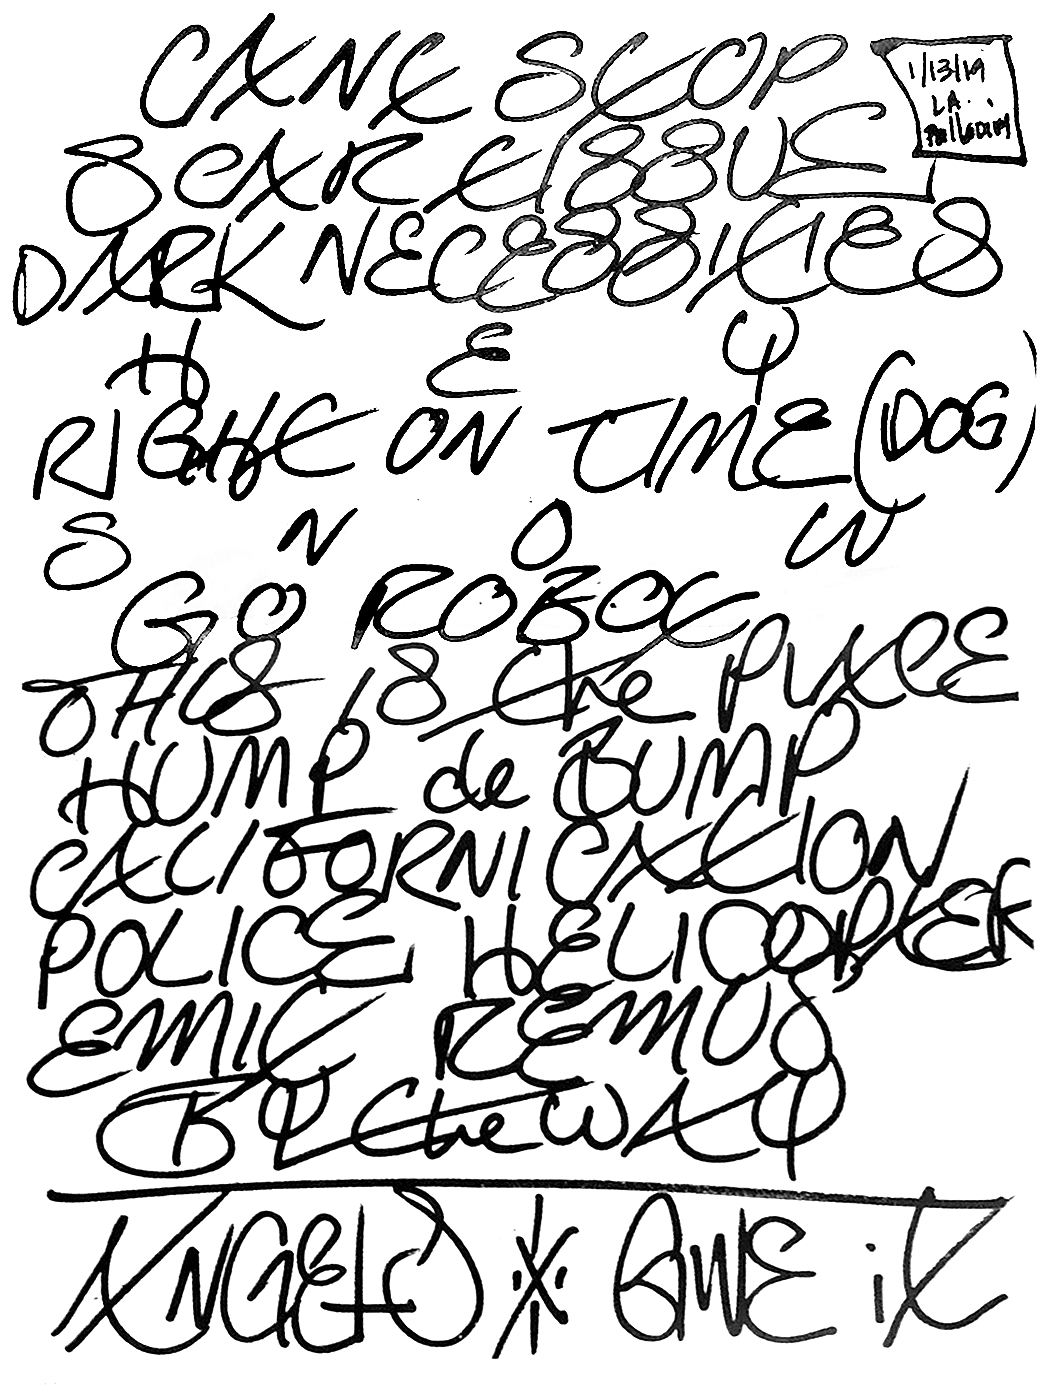 CANT STOP
1/13/19
LA
Palladium
SCAR TISSUE
DARK NECESSITIES
HEY
RIGHT ON TIME (DOG)
SNOW
GO ROBOT
THIS IS the PLACE
HUMP de BUMP
CALIFORNICATION
POLICE HELICOPTER
EMIT REMUS
BY the WAY
ANGELS * GIVE iT